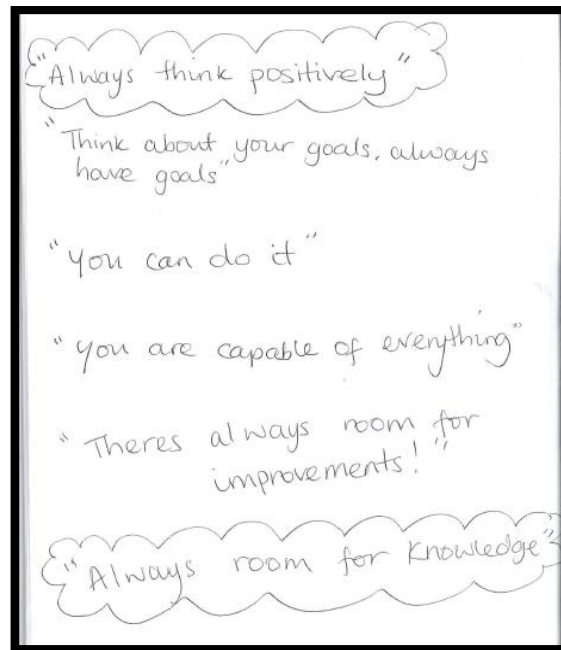 "Always think positively"
"Think about your goals, always
have goals"
"you can do it"
"you are capable of everything"
"Theres always room for
improvements!"
"Always room for knowledge"